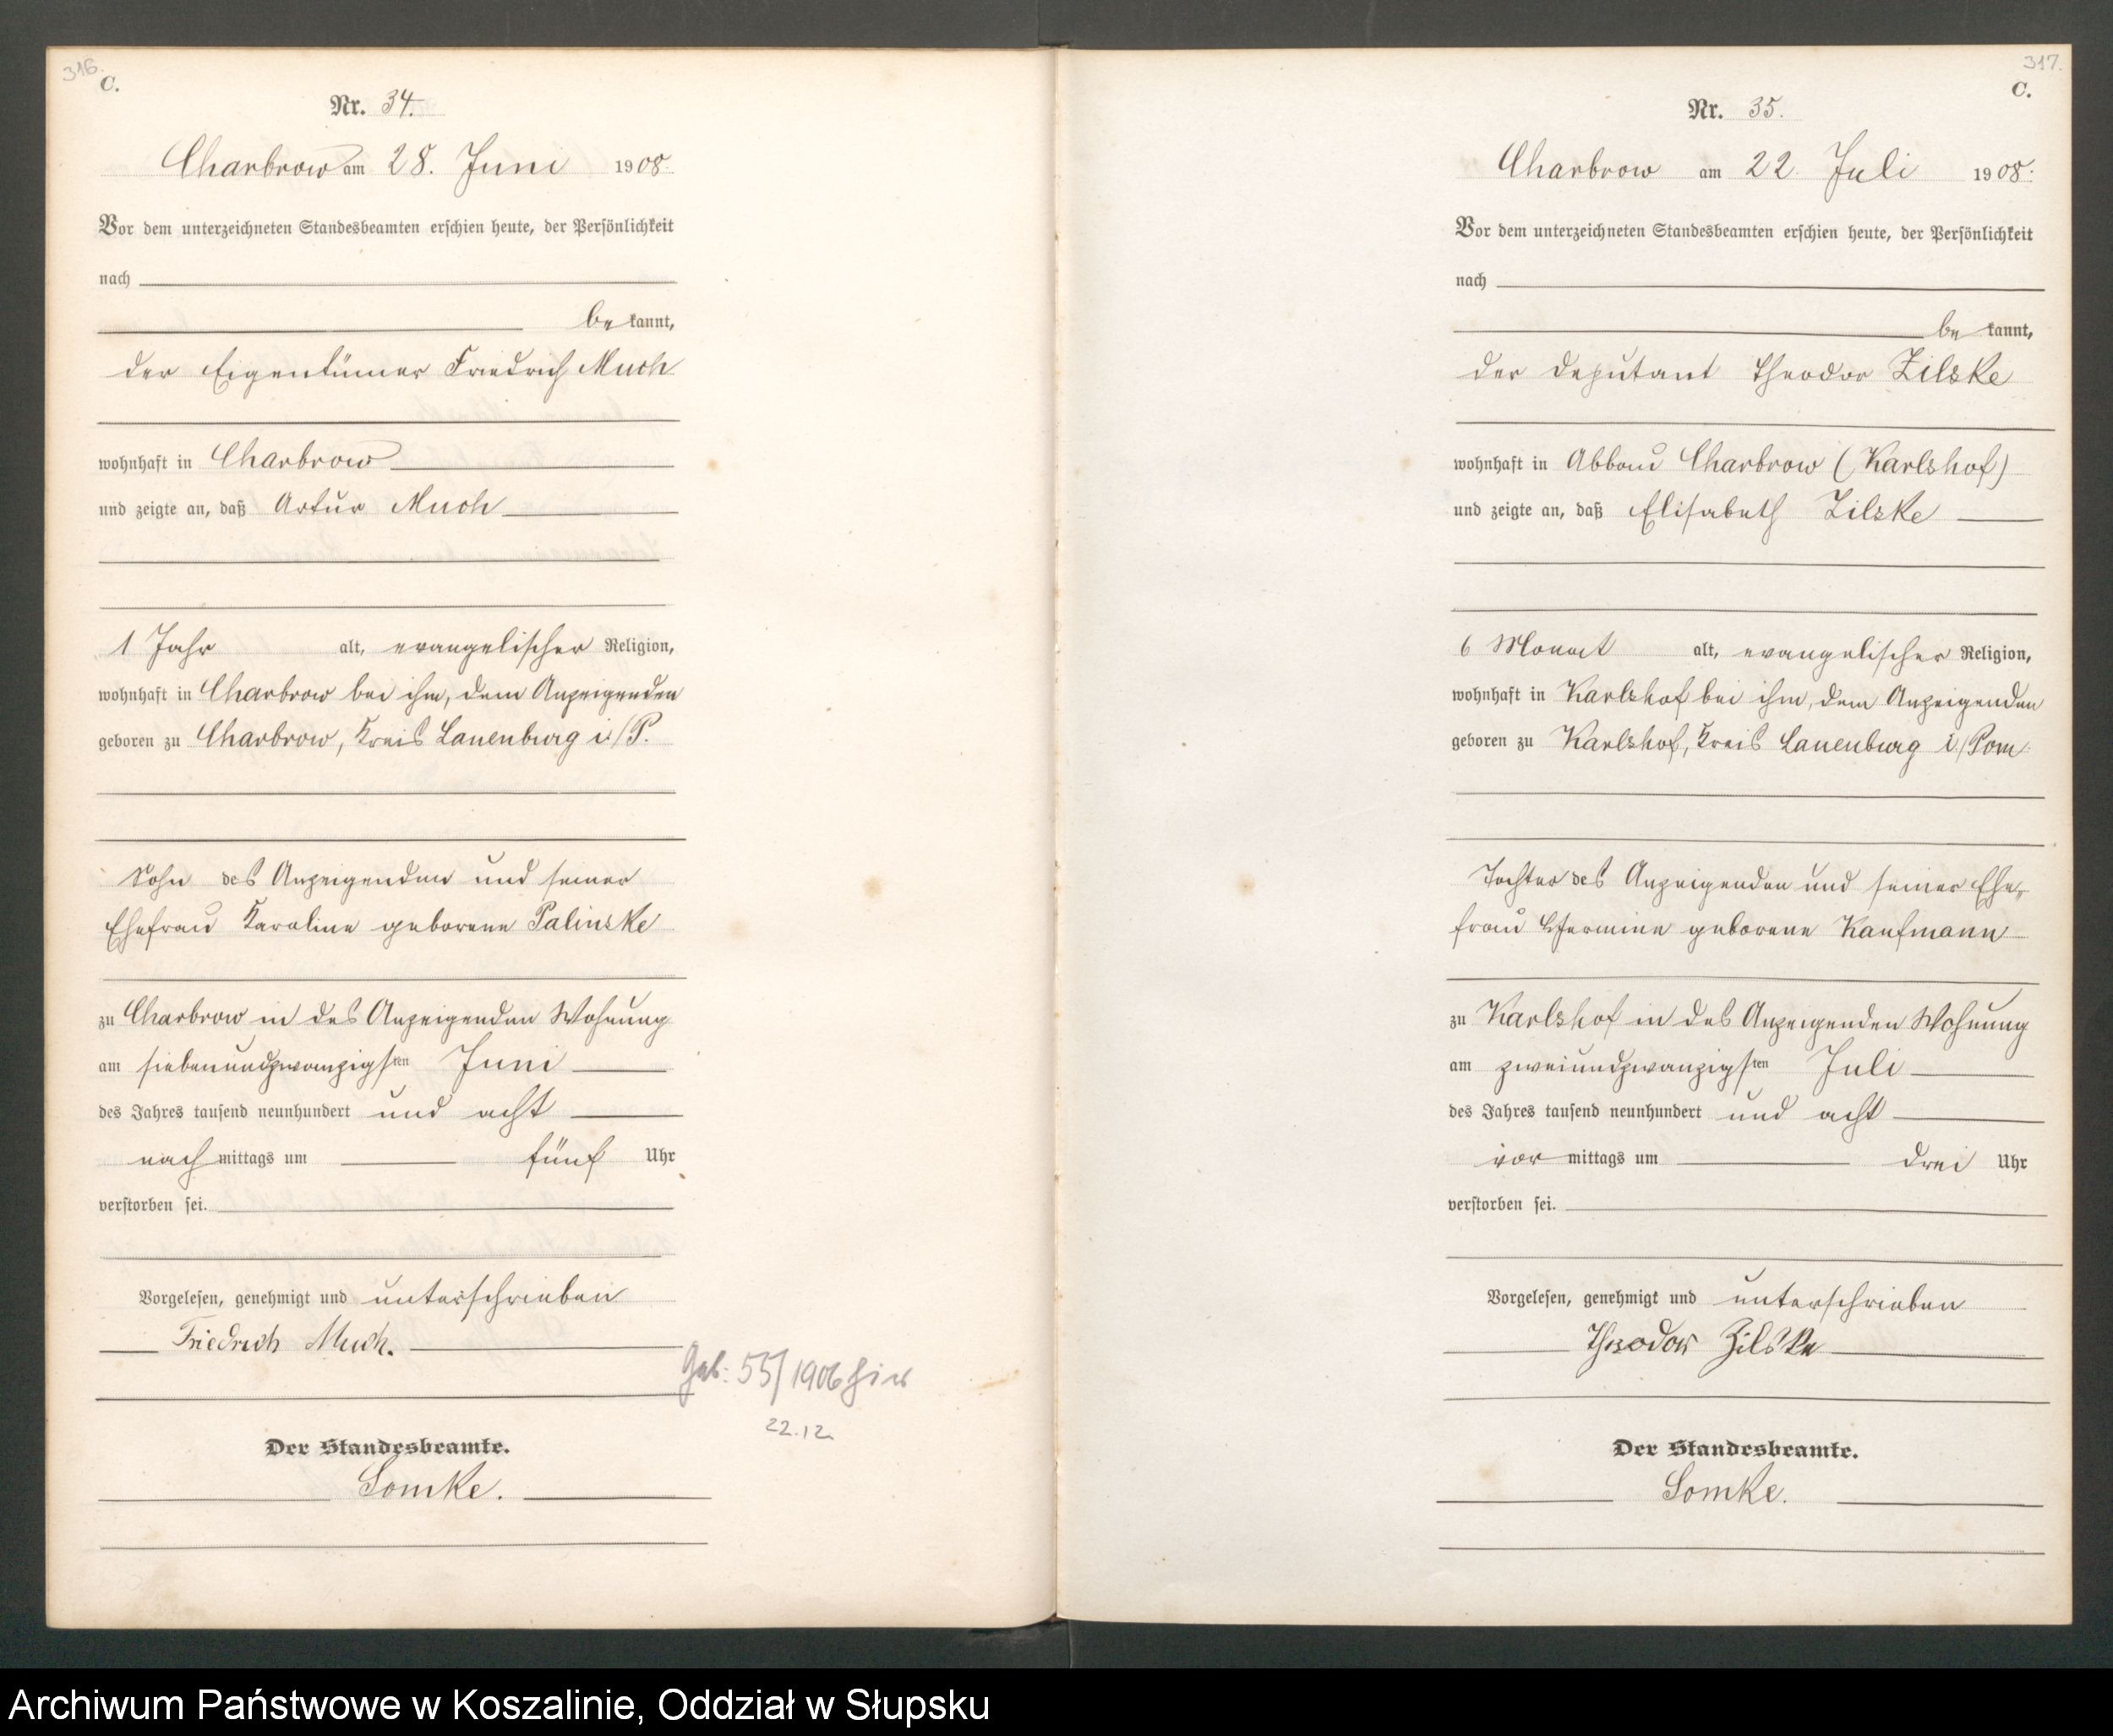 316.
C.
Nr. 34.
Charbrow am 28. Juni 1908.
Vor dem unterzeichneten Standesbeamten erschien heute, der Persönlichkeit
nach
be kannt,
der Eigentümer Friedrich Much
wohnhaft in Charbrow
und zeigte an, daß Artur Much
1 Jahr alt, evangelischer Religion,
wohnhaft in Charbrow bei ihm, dem Anzeigenden
geboren zu Charbrow, Kreis Lauenburg i./P.
Sohn des Anzeigenden und seiner
Ehefrau Karoline geborene Palinske
zu Charbrow in des Anzeigenden Wohnung
am siebenundzwanzigsten Juni
des Jahres tausend neunhundert und acht
nach mittags um fünf Uhr
verstorben sei.
Vorgelesen, genehmigt und unterschrieben
Friedrich Much.
Geb: 55/1906 hier
22.12
Der Standesbeamte.
Somke.
317.
C.
Nr. 35.
Charbrow am 22. Juli 1908.
Vor dem unterzeichneten Standesbeamten erschien heute, der Persönlichkeit
nach
be kannt,
der Deputant Theodor Zilske
wohnhaft in Abbau Charbrow (Karlshof)
und zeigte an, daß Elisabeth Zilske
6 Monat alt, evangelischer Religion,
wohnhaft in Karlshof bei ihm, dem Anzeigenden
geboren zu Karlshof, Kreis Lauenburg i./Pom
Tochter des Anzeigenden und seiner Ehe-
frau Hermine geborene Kaufmann
zu Karlshof in des Anzeigenden Wohnung
am zweiundzwanzigsten Juli
des Jahres tausend neunhundert und acht
vor mittags um drei Uhr
verstorben sei.
Vorgelesen, genehmigt und unterschrieben
Theodor Zilske
Der Standesbeamte.
Somke.
Archiwum Państwowe w Koszalinie, Oddział w Słupsku